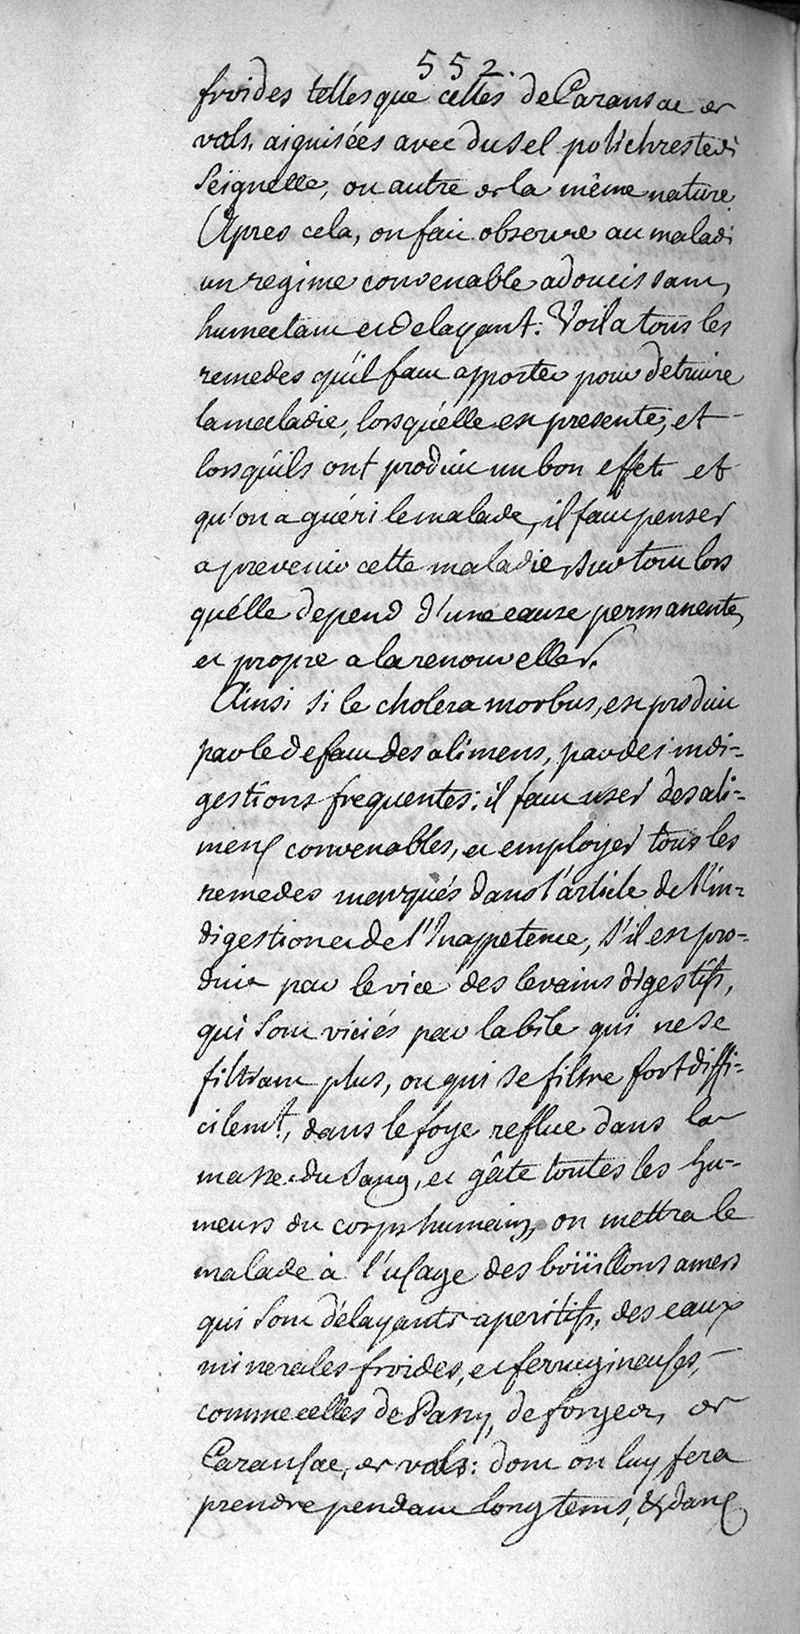 552.
froides telles que celles de Caransac de
vals, aiguisées avec du sel polichreste de
Seignelle, ou autre de la même nature
Apres cela, on fait observer au malade
un regime convenable adoucissant,
humectant et delayant: Voila tous les
remedes qu'il faut apporter pour detruire
la maladie, lorsqu'elle est presente, et
lorsqu'ils ont produit un bon effet et
qu'on a guéri le malade, il faut penser
a prevenir cette maladie, sur tout lors
qu'elle depend d'une cause permanente,
et propre a la renouveller.
Ainsi si le cholera morbus, est produit
par le defaut des alimens, par des indi-
gestions frequentes; il faut user des ali-
mens convenables, et employer tous les
remedes marqués dans l'article de l'in-
digestion et de l'Inappetence, s'il est pro-
duit par le vice des levains digestifs,
qui sont viciés par la bile qui ne se
filtrant plus, ou qui se filtre fort diffi-
cilemt., dans le foye reflue dans la
masse du sang, et gâte toutes les hu-
meurs du corps humain, on mettra le
malade à l'usage des boüillons amers
qui sont délayants aperitifs, des eaux
minerales froides, et ferrugineuses,
comme celles de Passy, de forges, de
Caransac, de vals: dont on luy fera
prendre pendant longtems, & dans